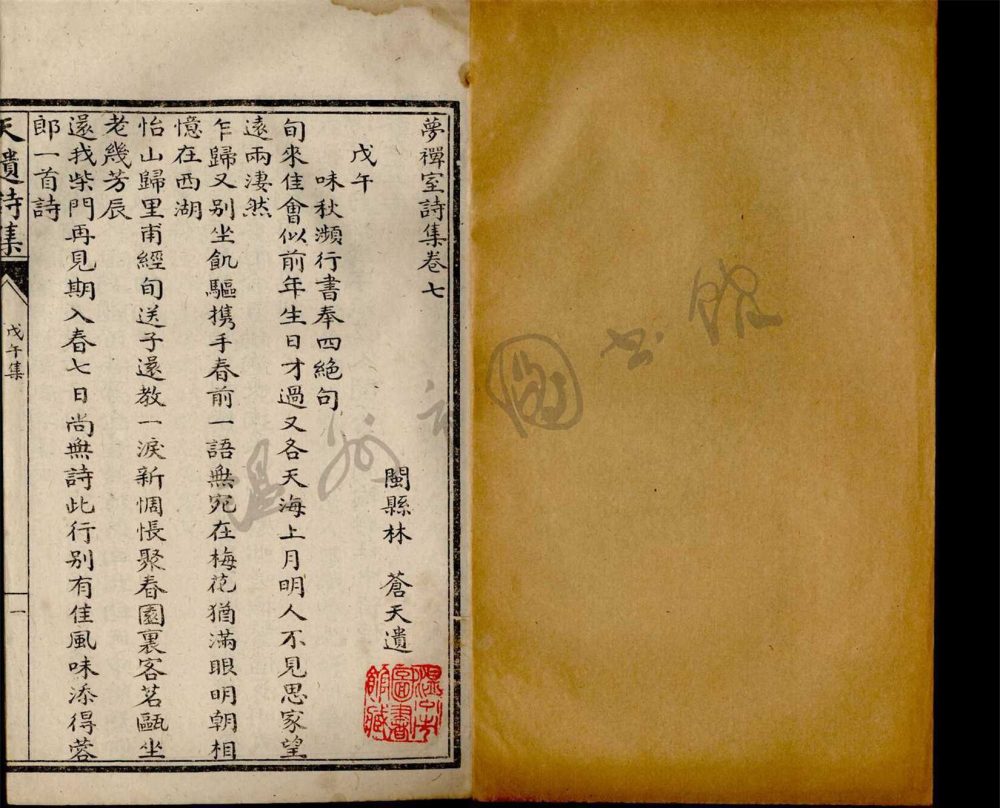 夢禪室詩集卷七
閩縣林 蒼天遺
戊午
味秋瀕行書奉四絕句
旬來佳會似前年生日才過又各天海上月明人不見思家望
遠兩淒然
乍歸又別坐飢驅携手春前一語無宛在梅花猶滿眼明朝相
憶在西湖
怡山歸里甫經旬送子還教一淚新惆悵聚春園裏客茗甌坐
老幾芳辰
還我柴門再見期入春七日尚無詩此行別有佳風味添得蓉
郎一首詩
天遺詩集
戊午集
一
溫州市圖書館藏
溫州市圖書館